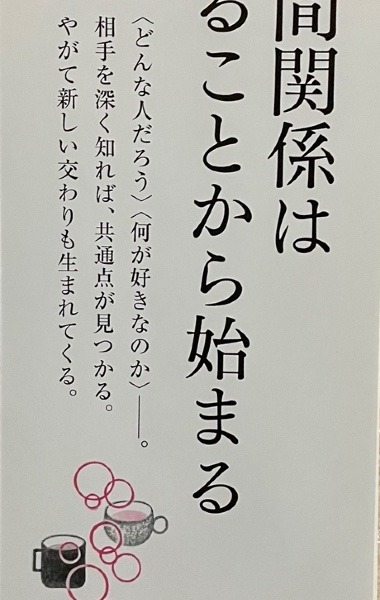 間関係は
ることから始まる
〈どんな人だろう〉〈何が好きなのか〉――。
相手を深く知れば、共通点が見つかる。
やがて新しい交わりも生まれてくる。